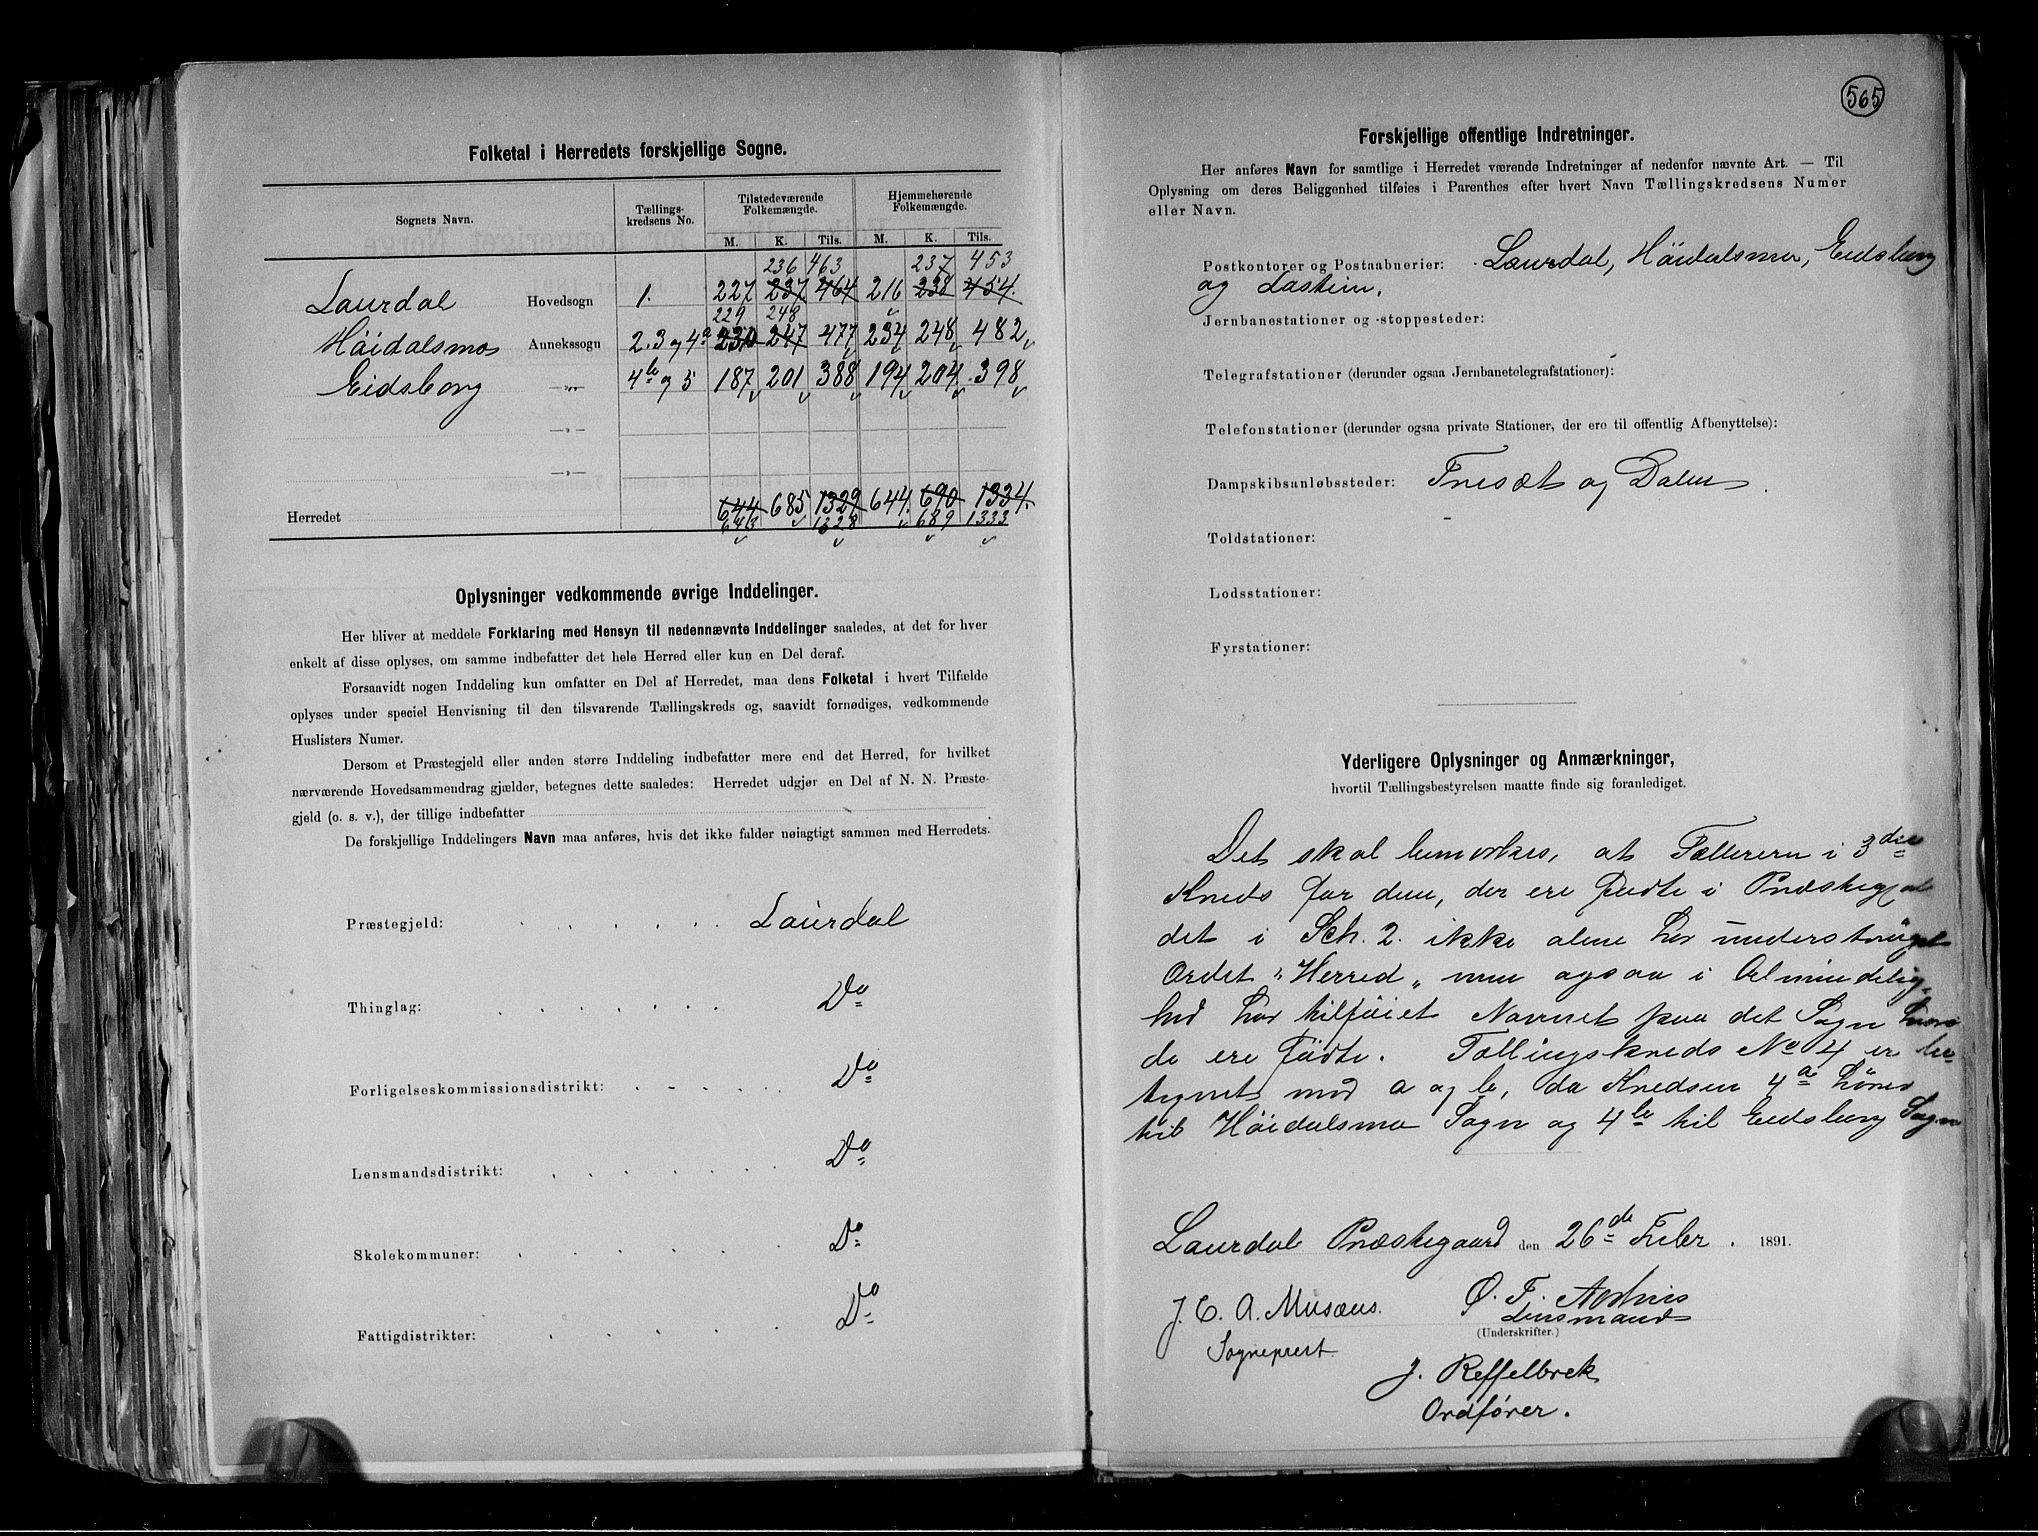 Folketal i Herredets forskjellige Sogne.
Sognets Navn. Tællings-kredsens No. Tilstedeværende Folkemængde. Hjemmehørende Folkemængde.
M. K. Tils. M. K. Tils.
236 463 237 453
Laurdal Hovedsogn 1. 227 237 464 216 238 454.
229 248
Höidalsmo Annekssogn 2. 3 og 4a 230 247 477 234 248 482
Eidsborg -„- 4b og 5 187 201 388 194 204 398
-„-
-„-
Herredet 644 685 1329 644. 690 1334.
643 1328 689 1333
Oplysninger vedkommende øvrige Inddelinger.
Her bliver at meddele Forklaring med Hensyn til nedennævnte Inddelinger saaledes, at det for hver
enkelt af disse oplyses, om samme indbefatter det hele Herred eller kun en Del deraf.
Forsaavidt nogen Inddeling kun omfatter en Del af Herredet, maa dens Folketal i hvert Tilfælde
oplyses under speciel Henvisning til den tilsvarende Tællingskreds og, saavidt fornødiges, vedkommende
Huslisters Numer.
Dersom et Præstegjeld eller anden større Inddeling indbefatter mere end det Herred, for hvilket
nærværende Hovedsammendrag gjælder, betegnes dette saaledes: Herredet udgjør en Del af N. N. Præste-
gjeld (o. s. v.), der tillige indbefatter
De forskjellige Inddelingers Navn maa anføres, hvis det ikke falder nøiagtigt sammen med Herredets.
Præstegjeld: Laurdal
Thinglag: Do
Forligelseskommissionsdistrikt: Do
Lensmandsdistrikt: Do
Skolekommuner: Do
Fattigdistrikter: Do
565
Forskjellige offentlige Indretninger.
Her anføres Navn for samtlige i Herredet værende Indretninger af nedenfor nævnte Art. — Til
Oplysning om deres Beliggenhed tilføies i Parenthes efter hvert Navn Tællingskredsens Numer
eller Navn.
Postkontorer og Postaabnerier: Laurdal, Höidalsmo, Eidsborg
og Lastein.
Jernbanestationer og -stoppesteder:
Telegrafstationer (derunder ogsaa Jernbanetelegrafstationer):
Telefonstationer (derunder ogsaa private Stationer, der ere til offentlig Afbenyttelse):
Dampskibsanløbssteder: Triset og Dalen.
Toldstationer:
Lodsstationer:
Fyrstationer:
Yderligere Oplysninger og Anmærkninger,
hvortil Tællingsbestyrelsen maatte finde sig foranlediget.
Det skal bemærkes, at Tælleren i 3die
Kreds for dem, der ere födte i Præstegjel
det i Sch. 2. ikke alene har understrøget
Ordet "Herred„ men ogsaa i Almindelig-
hed har tilföiet Navnet paa det Sogn hvor
de ere födte. Tællingskreds No 4 er be-
tegnet med a og b, da Kredsen 4a hörer
til Höidalsmo Sogn og 4b til Eidsborg Sogn
Laurdal Præstegaard den 26de Febr. 1891.
J. C. A. Musæus. Ø. T.
Sogneprest. Lensmand
(Underskrifter.)
J. Reffelbrek
Ordfører.